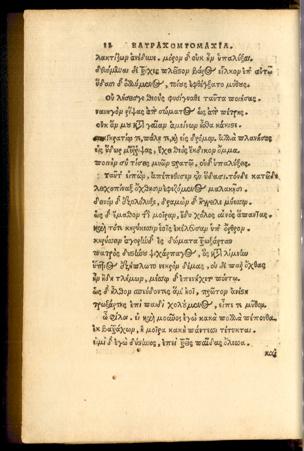 12 ΒΑΤΡΑΧΟΜΥΟΜΑΧΙΑ.
λακτίζων ἀνέδυνε. μόρον δ' οὐκ ἦν ὑπαλύξαι.
δευόμεναι δὲ τρίχες πλεῖστον βάρος εἷλκον ἐπ' αὐτῷ
ὕδασι δ' ὀλλύμενος, τοίους ἐφθέγξατο μύθους.
Οὐ λήσεις γε θεοὺς φυσίγναθε ταῦτα ποιήσας.
ναυηγὸν ῥίψας ἀπὸ σώματος ὡς ἀπὸ πέτρης.
οὐκ ἄν μου κατὰ γαῖαν ἀμείνων ἦσθα κάκιστε.
παγκρατίῳ τε, πάλῃ τε, καὶ εἰς δρόμον. ἀλλὰ πλανήσας
εἰς ὕδωρ μ' ἔρριψας, ἔχει θεὸς ἔκδικον ὄμμα.
ποινὴν σὺ τίσεις μυῶν στρατῷ, οὐδ' ὑπαλύξεις.
Ταῦτ' εἰπὼν, ἀπέπνευσεν ἐν ὕδασι. τόνδε κατεῖδε
λειχοπίναξ ὄχθῃσιν ἐφεζόμενος μαλακῇσι.
δεινὸν δ' ἐξολόλυξε, δραμὼν δ' ἤγγειλε μύεσσιν.
ὡς δ' ἔμαθον τὴν μοῖραν, ἔδυ χόλος αἰνὸς ἅπαντας.
καὶ τότε κηρύκεσσιν ἑοῖς ἐκέλευσαν ὑπ' ὄρθρον.
κηρύσσειν ἀγορήνδ' ἐς δώματα τρωξάρταο
πατρὸς δυστήνου ψιχάρπαγος, ὃς κατὰ λίμνην
ὕπτιος ἐξήπλωτο νεκρὸν δέμας, οὐδὲ παρ' ὄχθας
ἦν ἤδη τλήμων, μέσσῳ δ' ἐπενήχετο πόντῳ.
ὡς δ' ἦλθον σπεύδοντες ἅμ' ἠοῖ, πρῶτος ἀνέστη
τρωξάρτης ἐπὶ παιδὶ χολούμενος, εἶπέ τε μῦθον.
ὦ φίλοι, εἰ καὶ μοῦνος ἐγὼ κακὰ πολλὰ πέπονθα.
ἐκ βατράχων, ἡ μοῖρα κακὴ πάντεσσι τέτυκται.
εἰμὶ δ' ἐγὼ δύστηνος, ἐπεὶ τρεῖς παῖδας ὄλεσσα.
καὶ